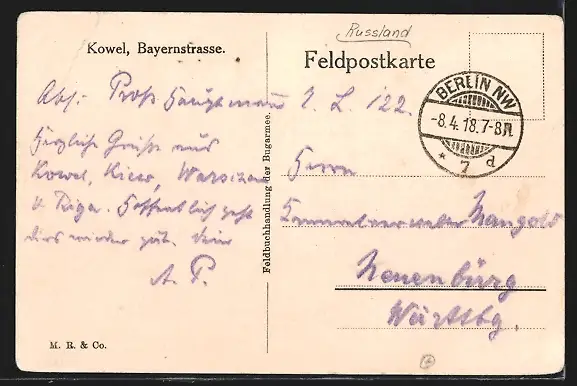 Russland
Kowel, Bayernstrasse.
Feldpostkarte
Abs: Prof. Hauptmann I. L. 122.
Herzliche Grüße aus
Kowel, Kiew, Warschau
u. Riga. Hoffentlich geht
dies wieder gut. Dein
A. P.
Feldbuchhandlung der Bugarmee.
BERLIN NW
-8.4.18.7-8
* 7 d
Herrn
Mangold
Neuenbürg
Württbg.
M. R. & Co.